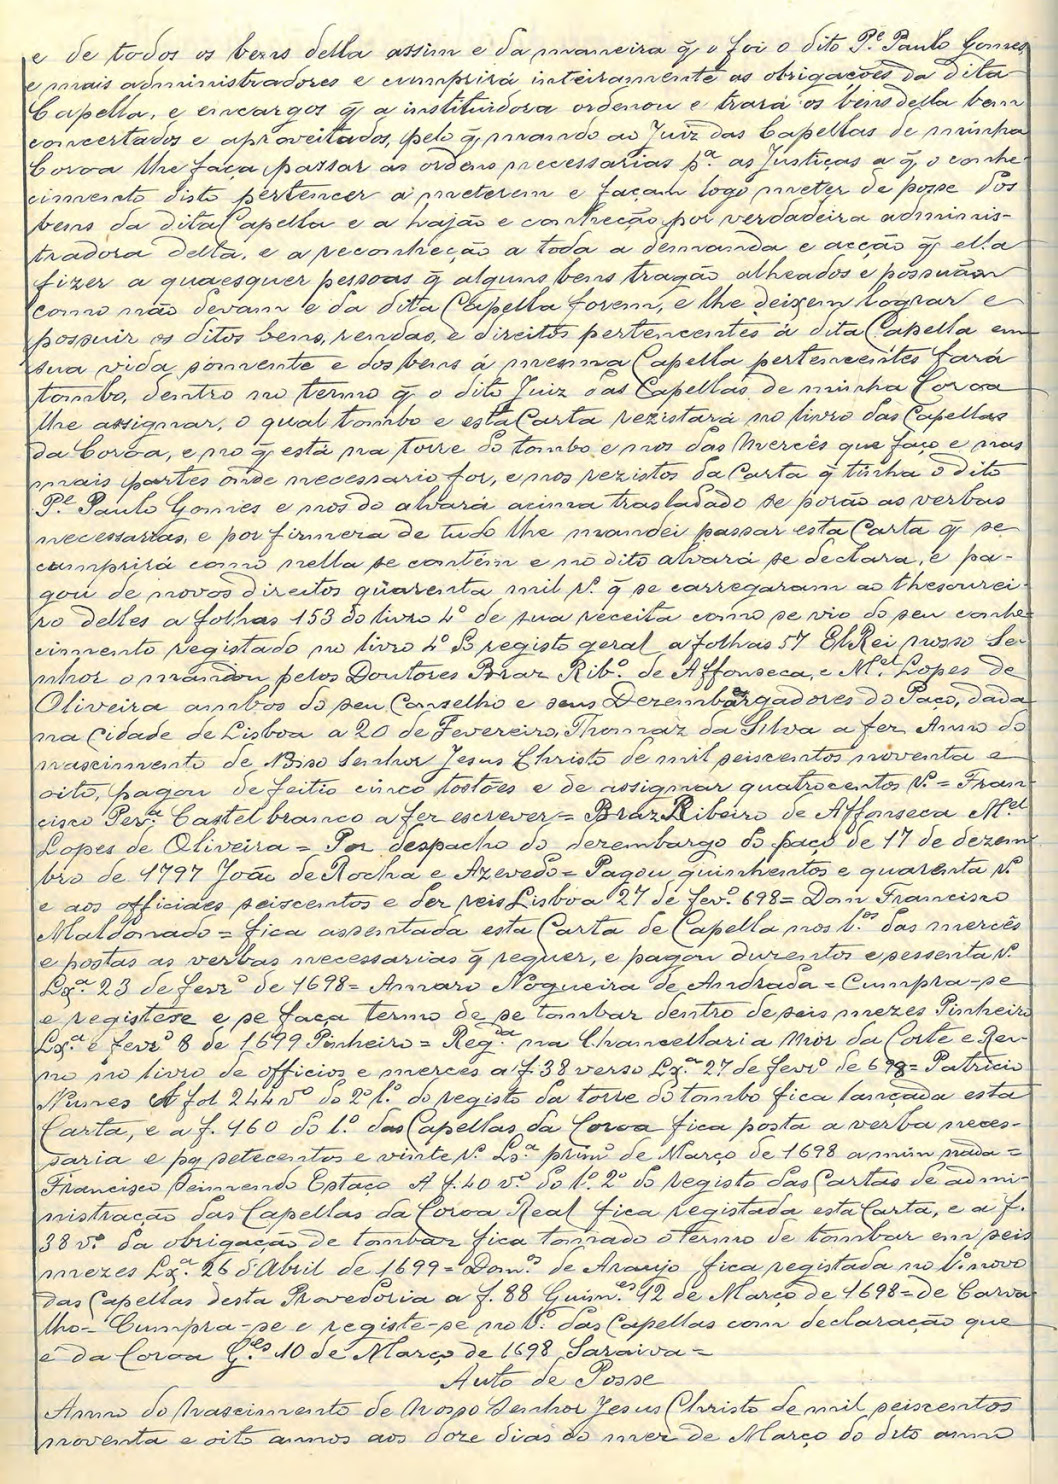 e de todos os bens della assim e da maneira q̃ o foi o dito P.e Paulo Gomes
e mais administradores e cumprirá inteiramente as obrigações da dita
Capella, e encargos q̃ a instituidora ordenou e trará os bens della bem
concertados e aproveitados, pelo q̃ mando ao Juiz das Capellas de minha
Coroa lhe faça passar as ordens necessarias p.a as Justiças a q̃ o conhe-
cimento disto pertencer a meterem e façam logo meter de posse dos
bens da dita Capella e a hajão e conheção por verdadeira adminis-
tradora della, e a reconheção a toda a demanda e acção q̃ ella
fizer a quaesquer pessoas q̃ alguns bens tragão alheados e possuão
como não devam e da dita Capella forem, e lhe deixem lograr e
possuir os ditos bens, rendas, e direitos pertencentes á dita Capella em
sua vida somente e dos bens á mesma Capella pertencentes fará
tombo, dentro no termo q̃ o dito Juiz das Capellas de minha Coroa
lhe assignar, o qual tombo e esta Carta rezistará no livro das Capellas
da Coroa, e no q̃ está na torre do tombo e nos das Mercês que faço e nas
mais partes onde necessario for, e nos rezistos da Carta q̃ tinha o dito
P.e Paulo Gomes e nos do alvará acima trasladado se porão as verbas
necessarias, e por firmeza de tudo lhe mandei passar esta Carta q̃ se
cumprirá como nella se contém e no dito alvará se declara, e pa-
gou de novos direitos quarenta mil r.s q̃ se carregaram ao thesourei-
ro delles a folhas 153 do livro 4º de sua receita como se vio do seu conhe-
cimento registado no livro 4º do registo geral a folhas 57 El Rei nosso Se-
nhor o mandou pelos Doutores Braz Rib.o de Affonseca, e M.el Lopes de
Oliveira ambos do seu Conselho e seus Dezembargadores do Paço, dada
na Cidade de Lisboa a 20 de Fevereiro, Thomaz da Silva a fez Anno do
nascimento de Nosso Senhor Jesus Christo de mil seiscentos noventa e
oito, pagou de feitio cinco tostões e de assignar quatrocentos r.s = Fran-
cisco Per.a Castelbranco a fez escrever = Braz Ribeiro de Affonseca M.el
Lopes de Oliveira = Por despacho do dezembargo do paço de 17 de dezem
bro de 1797 João de Rocha e Azevedo = Pagou quinhentos e quarenta r.s
e aos officiaes seiscentos e dez reis Lisboa 27 de fev.o 698 = Dom Francisco
Maldonado = fica assentada esta Carta de Capella nos l.os das mercês
e postas as verbas necessarias q̃ requer, e pagou duzentos e sessenta r.s
Lx.a 23 de fevr.o de 1698 = Amaro Nogueira de Andrada = Cumpra-se
e registese e se faça termo de se tombar dentro de seis mezes Pinheiro
Lx.a e fevr.o 8 de 1699 Pinheiro = Reg.da na Chancellaria Mór da Corte e Rei-
no no livro de officios e mercês a f. 38 verso Lx.a 27 de fevr.o de 698 = Patricio
Nunes A fol 244 v.o do 2º l.o do registo da torre do tombo fica lançada esta
Carta, e a f. 160 do l.o das Capellas da Coroa fica posta a verba neces-
saria e pg setecentos e vinte r.s Lx.a prim.o de Março de 1698 a mim nada =
Francisco Estaço A f. 40 v.o do l.o 2º do registo das Cartas de admi-
nistração das Capellas da Coroa Real fica registada esta Carta, e a f.
38 v.o da obrigação de tombar fica tomado o termo de tombar em seis
mezes Lx.a 26 d'Abril de 1699 = Dom.os de Araujo fica registada no l.o novo
das Capellas desta Provedoria a f. 88 Guim.es 12 de Março de 1698 = de Carva
lho = Cumpra-se e registe-se no l.o das Capellas com declaração que
é da Coroa G.es 10 de Março de 1698 Saraiva =
Auto de Posse
Anno do Nascimento de Nosso Senhor Jesus Christo de mil seiscentos
noventa e oito annos aos doze dias do mez de Março do dito anno